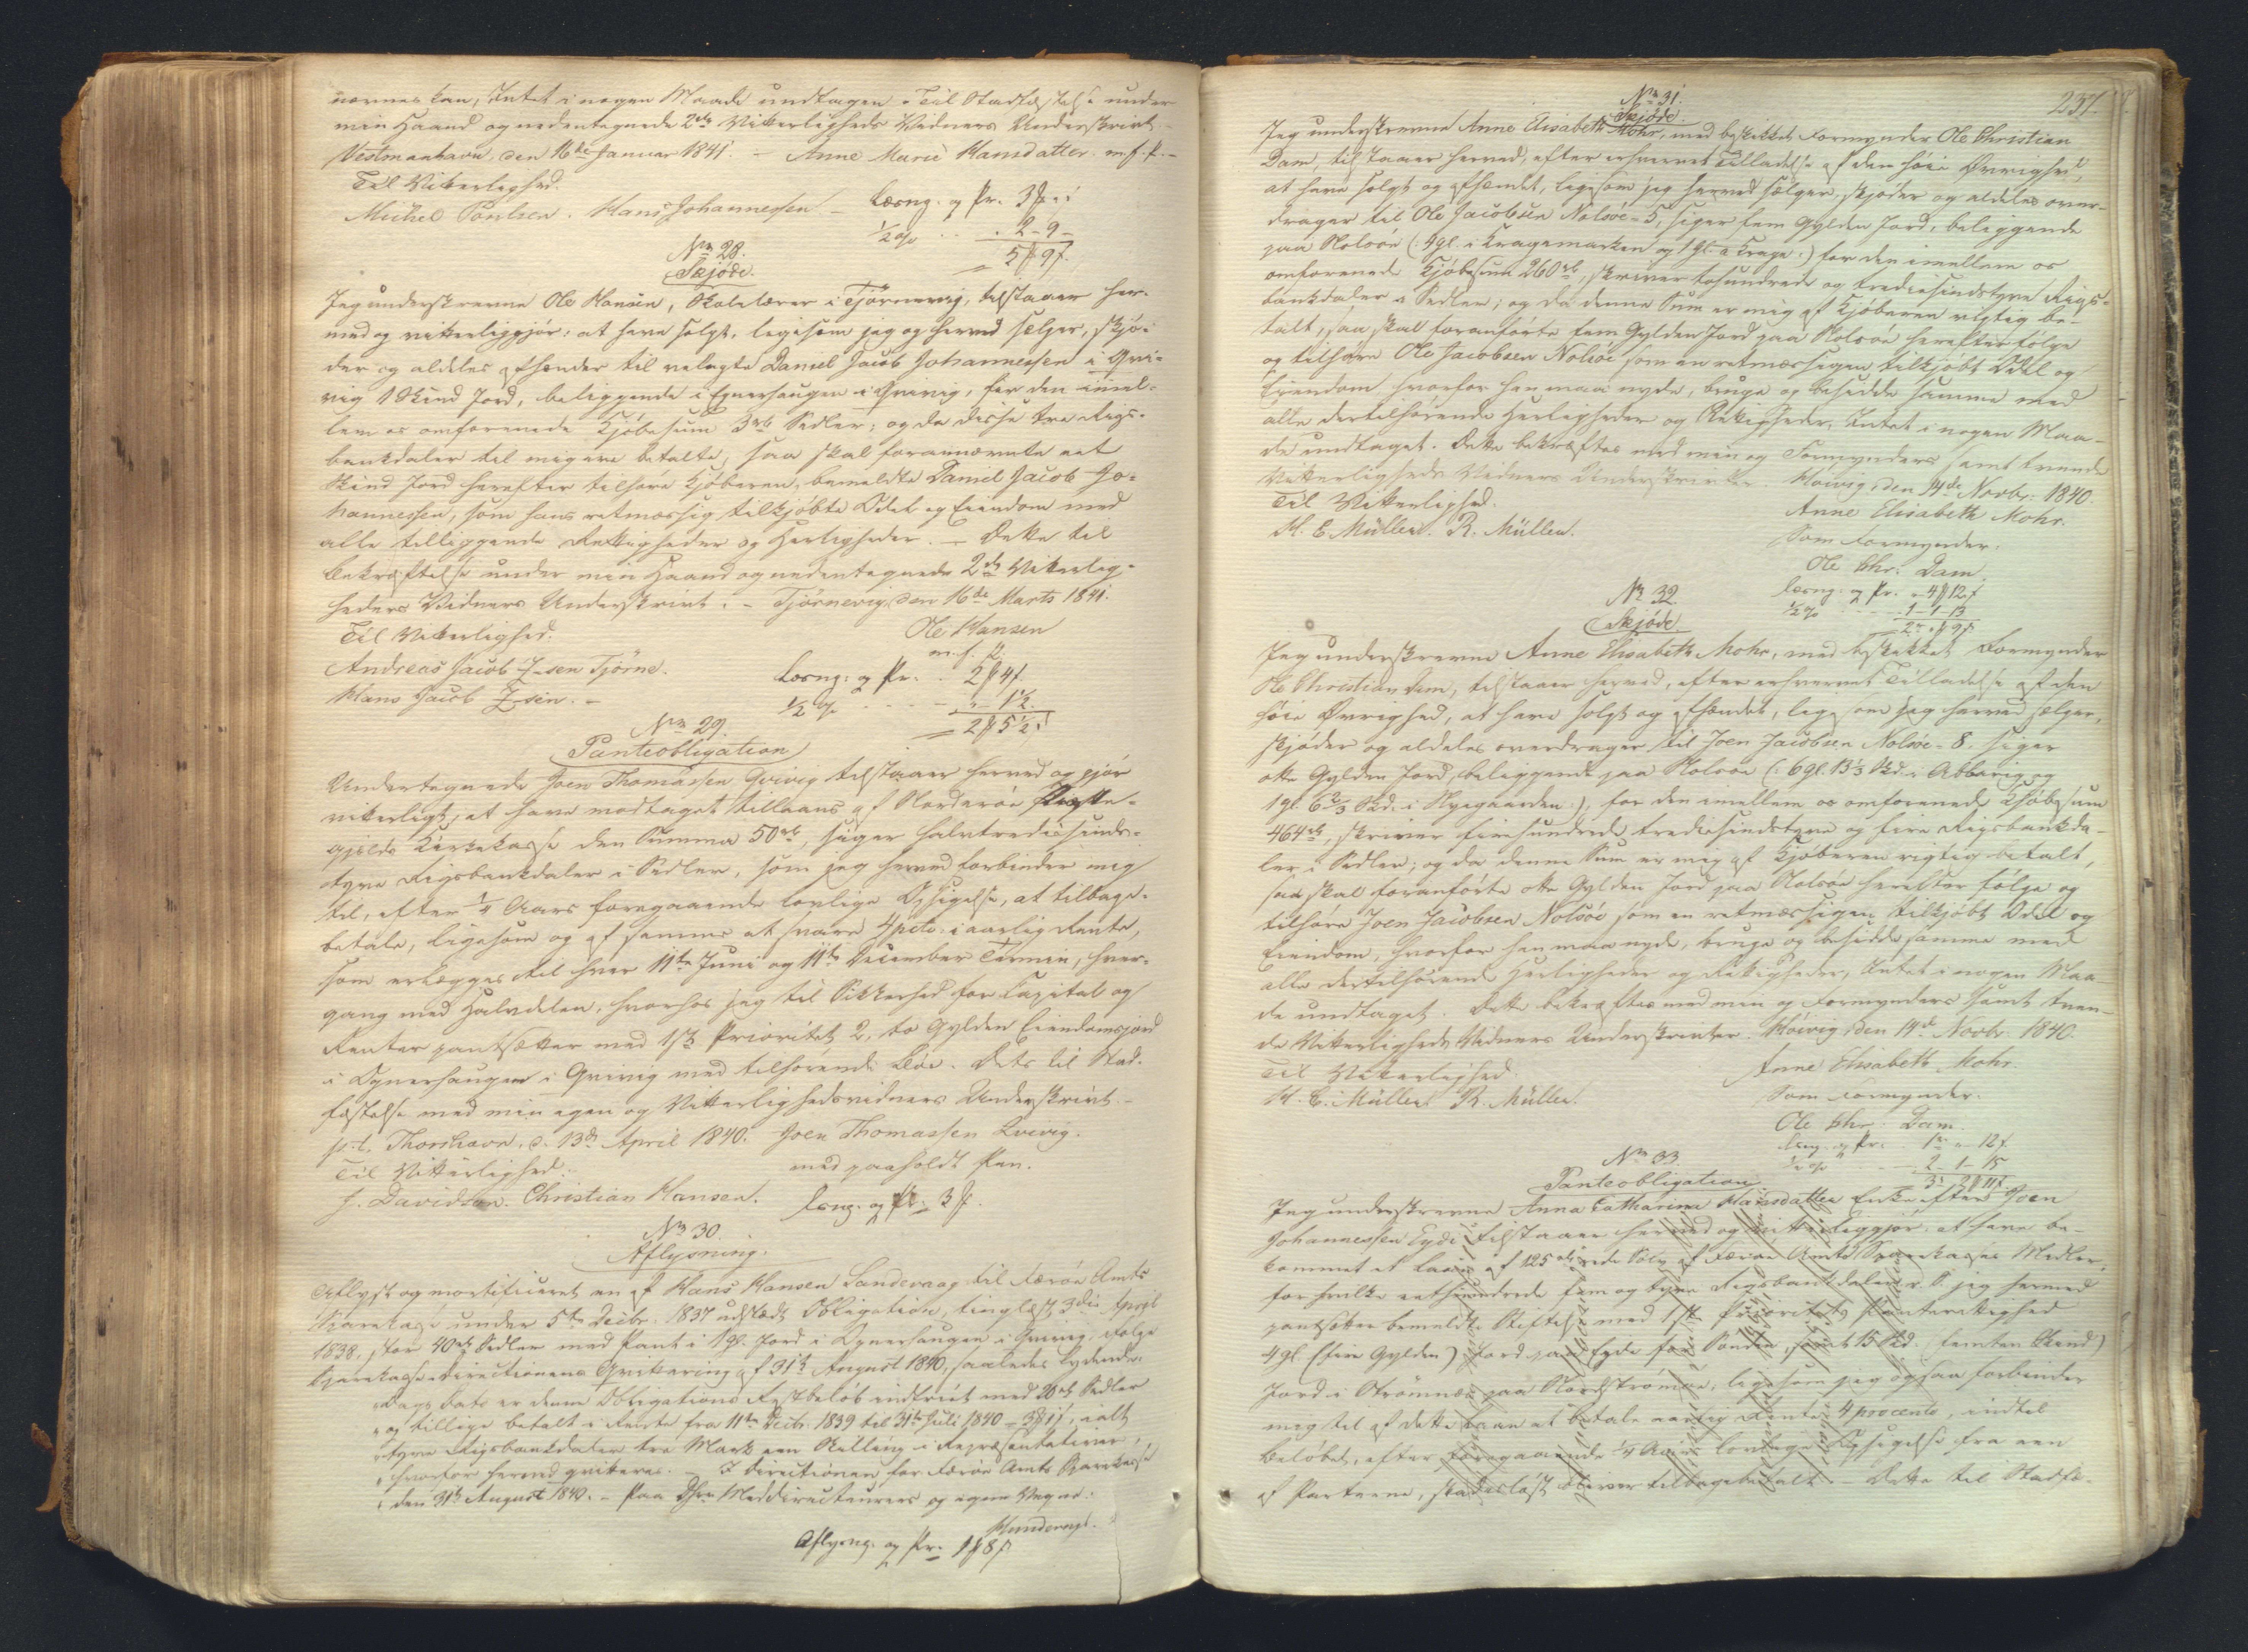 nævnes kan, Intet i nogen Maade undtagen. Til Stadfæstelse under
min Haand og nedentegnede 2de Vitterligheds Vidners Underskrivt.
Vestmanhavn, den 16de Januar 1841. – Anne Marie Hansdatter. m. f. P. –
Til Vitterlighed.
Michel Poulsen. Hans Johannessen –
Læsng. og Pr. 3
½ % . . . 2 – 9 –
5 9
No 28.
Skjöde.
Jeg underskrevne Ole Hansen, Skolelærer i Tjörnevig, tilstaaer her-
med og vitterliggjör: at have solgt, ligesom jeg og herved sælger, skjö-
der og aldeles afhænder til velagte Daniel Jacob Johannessen i Qvi-
vig 1 Skind Jord, beliggende i Egnerhaugen i Qvivig, for den imel-
lem os omforenede Kjöbesum 3 rb Sedler; og da disse tre Rigs-
bankdaler til mig ere betalte, saa skal forannævnte eet
Skind Jord herefter tilhöre Kjöberen, bemeldte Daniel Jacob Jo-
hannessen, som hans retmæssig tilkjöbte Odel og Eiendom med
alle tilliggende Rettigheder og Herligheder. – Dette til
Bekræftelse under min Haand og nedentegnede 2de Vitterlig-
heders Vidners Underskrivt. – Tjörnevig, den 16de Marts 1841.
Til Vitterlighed.
Ole Hansen
m. f. P.
Andreas Jacob J-sen Tjörne.
Hans Jacob J-sen. –
Læsng. og Pr. . 2 4
½ % . . . . – 1½
2 5½
No 29.
Panteobligation
Undertegnede Joen Thomassen Qvivig tilstaaer herved og gjör
vitterligt, at have modtaget tillaans af Norderöe Præste-
gjelds Kirkekasse den Summa 50 rb, siger halvtrediesinds-
tyve Rigsbankdaler i Sedler, som jeg herved forbinder mig
til, efter ¼ Aars foregaaende lovlige Opsigelse, at tilbage-
betale, ligesom og af samme at svare 4 pCto. i aarlig Rente,
som erlægges til hver 11te Juni og 11te December Termin, hver-
gang med Halvdelen, hvorhos jeg til Sikkerhed for Capital og
Renter pantsætter med 1ste Prioritet 2, to Gylden Eiendomsjord
i Egnerhaugen i Qvivig med tilhörende Böe. Dets til Stad-
fæstelse med min egen og Vitterlighedsvidners Underskrivt. –
p. t. Thorshavn, d. 13de April 1840. Joen Thomassen Qvivig.
Til Vitterlighed. med paaholdt Pen.
J. Davidsen. Christian Hansen. Læsng. og Pr. 3
No 30.
Aflysning.
Aflyst og mortificeret en af Hans Hansen Sandevaag til Færöe Amts
Sparekasse under 5te Decbr. 1837 udstædt Obligation, tinglæst 3die April
1838, stor 40 rb Sedler med Pant i 1 gl. Jord i Egnerhaugen i Qvivig, ifölge
Sparekasse-Directionens Qvittering af 31te August 1840, saaledes lydende:
„Dags Dato er denne Obligations Restbelöb indfriet med 20 rb Sedler
„og tillige betalt i Rente fra 11te Decbr. 1839 til 31te Juli 1840 – 3 1, ialt
„tyve Rigsbankdaler tre Mark een Skilling i Repræsentativer,
„hvorfor herved qvitteres. – I Directionen for Færöe Amts Sparekasse
„den 31te August 1840. – Paa Medirecteurers og egne Vegne.
Aflysng. og Pr. 1 8
237.
No 31.
Skjöde.
Jeg underskrevne Anne Elisabeth Mohr, med beskikket Formynder Ole Christian
Dam, tilstaaer herved, efter erhvervet Tilladelse af den höie Övrighed,
at have solgt og afhændet, ligesom jeg herved sælger, skjöder og aldeles over-
drager til Ole Jacobsen Nolsöe – 5, siger fem Gylden Jord, beliggende
paa Nolsöe (: 4 gl. i Kragemarken og 1 gl. :) for den imellem os
omforenede Kjöbesum 260 rb, skriver tohundrede og trediesindstyve Rigs-
bankdaler i Sedler; og da denne Sum er mig af Kjöberen rigtig be-
talt, saa skal foranförte fem Gylden Jord paa Nolsöe herefter fölge
og tilhöre Ole Jacobsen Nolsöe som en retmæssigen tilkjöbt Odel og
Eiendom hvorfor han maa nyde, bruge og besidde samme med
alle dertilhörende Herligheder og Rettigheder, Intet i nogen Maa-
de undtaget. Dette bekræftes med min og Formynders samt tvende
Vitterligheds Vidners Underskrivter. Hoivig, den 14de Novbr. 1840.
Til Vitterlighed.
Anne Elisabeth Mohr.
H. C. Müller. R. Müller.
Som Formynder.
Ole Chr. Dam.
Læsng. og Pr. „ 4 12
½ % . . . 1 – 1 – 13
No 32.
Skjöde.
Jeg underskrevne Anne Elisabeth Mohr, med beskikket Formynder
Ole Christian Dam, tilstaaer herved, efter erhvervet Tilladelse af den
höie Övrighed, at have solgt og afhændet, ligesom jeg herved sælger,
skjöder og aldeles overdrager til Joen Jacobsen Nolsöe – 8. siger
otte Gylden Jord, beliggende paa Nolsöe (: 6 gl. 13⅓ Skd. i Abbarig og
1 gl. 6⅔ Skd. i Nyegaarden :), for den imellem os omforenede Kjöbesum
464 rb, skriver firehundrede trediesindstyve og fire Rigsbankda-
ler i Sedler; og da denne Sum er mig af Kjöberen rigtig betalt,
saa skal foranförte otte Gylden Jord paa Nolsöe herefter fölge og
tilhöre Joen Jacobsen Nolsöe som en retmæssigen tilkjöbt Odel og
Eiendom, hvorfor han maa nyde, bruge og besidde samme med
alle dertilhörende Herligheder og Rettigheder, Intet i nogen Maa-
de undtaget. Dette bekræftes med min og Formynders samt tven-
de Vitterligheds Vidners Underskrivter. Hoivig, den 14de Novbr. 1840.
Til Vitterlighed.
Anne Elisabeth Mohr.
H. C. Müller. R. Müller.
Som Formynder.
Ole Chr. Dam.
Læsng. og Pr. . 1 „ 12
½ % . . . 2 – 1 – 15
No 33.
Panteobligation.
Jeg underskrevne Anna Catharina Hansdatter Enke efter Joen
Johannessen Eyde tilstaaer herved og vitterliggjör: at have be-
kommet et Laan af 125 rbd rede Sölv af Færöe Amts Sparekasses Midler,
for hvilke eethundrede fem og tyve Rigsbankdaler r. S. jeg hermed
pantsætter bemeldte Stiftelse med 1ste Prioritets Panterettighed
4 gl. (fire Gylden) Jord paa Eyde for Sonden, samt 15 Skd. (femten Skind)
Jord i Strömnæs paa Nordströmöe, ligesom jeg ogsaa forbinder
mig til af dette Laan at betale aarlig Rente 4 procento, indtil
Belöbet, efter foregaaende ¼ Aars lovlige Opsigelse fra een
af Parterne, skadeslöst bliver tilbagebetalt. – Dette til Stadfæ-